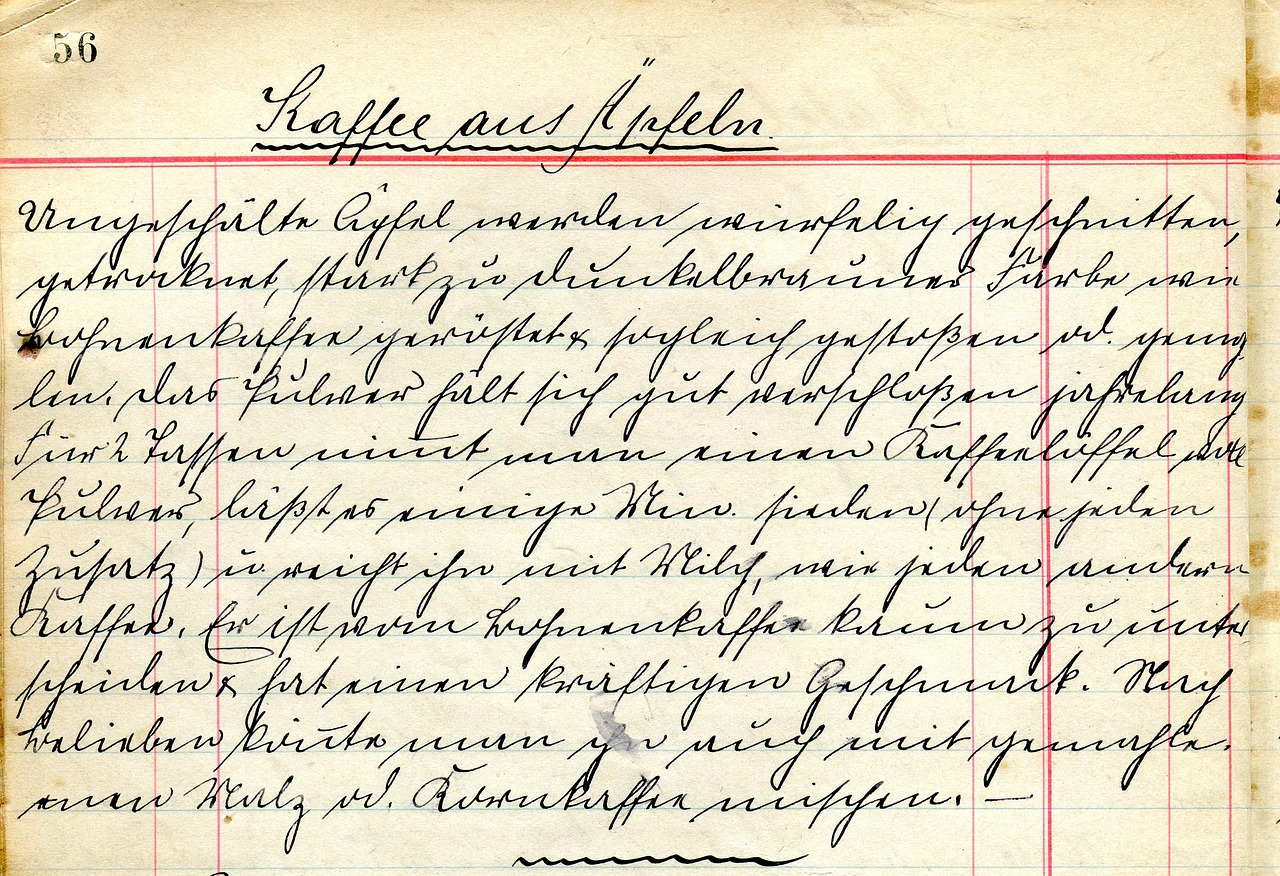 56
Kaffee aus Äpfeln.
Ungeschälte Äpfel werden würfelig geschnitten,
getrocknet, stark zu dunkelbrauner Farbe wie
Bohnenkaffee geröstet & sogleich gestoßen od. gemah
len. Das Pulver hält sich gut verschloßen jahrelang
Für 2 Tassen nim̄t man einen Kaffeelöffel voll
Pulver, läßt es einige Min. sieden (ohne jeden
Zusatz) u. reicht ihn mit Milch, wie jeden andern
Kaffee. Er ist vom Bohnenkaffee kaum zu unter
scheiden & hat einen kräftigen Geschmack. Nach
Belieben kön̄te man ihn auch mit gemahle-
enen Malz od. Kornkaffee mischen. —